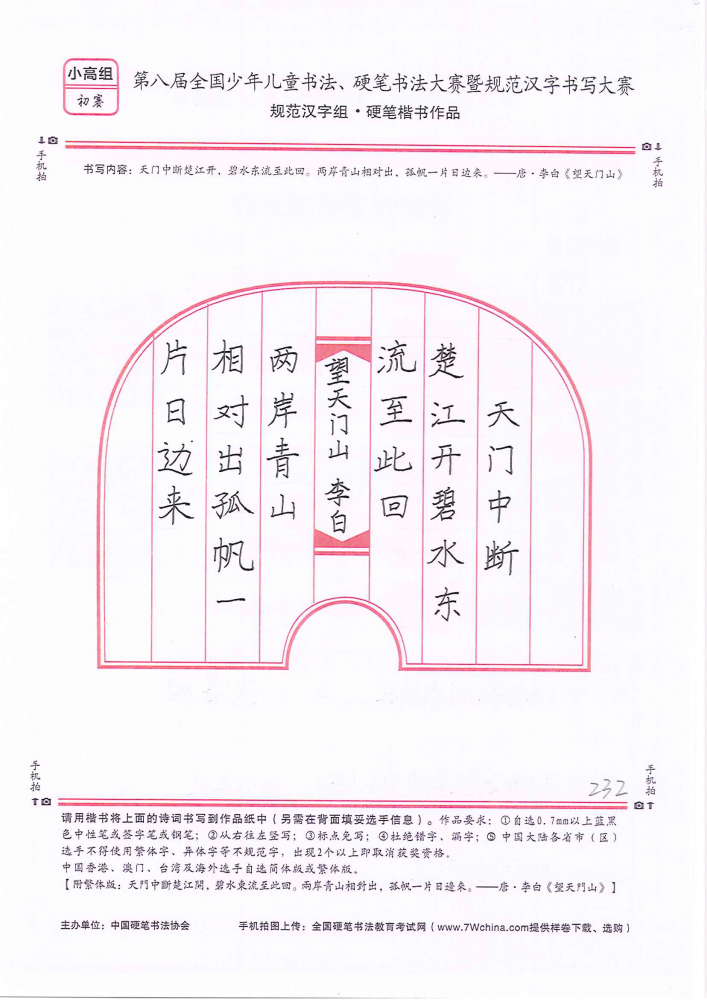 小高组
初赛
第八届全国少年儿童书法、硬笔书法大赛暨规范汉字书写大赛
规范汉字组·硬笔楷书作品
手机拍
手机拍
书写内容：天门中断楚江开，碧水东流至此回。两岸青山相对出，孤帆一片日边来。——唐·李白《望天门山》
天门中断
楚江开碧水东
流至此回
望天门山 李白
两岸青山
相对出孤帆一
片日边来
232
手机拍
手机拍
请用楷书将上面的诗词书写到作品纸中（另需在背面填妥选手信息）。作品要求：①自选0.7mm以上蓝黑
色中性笔或签字笔或钢笔；②从右往左竖写；③标点免写；④杜绝错字、漏字；⑤中国大陆各省市（区）
选手不得使用繁体字、异体字等不规范字，出现2个以上即取消获奖资格。
中国香港、澳门、台湾及海外选手自选简体版或繁体版。
【附繁体版：天門中斷楚江開，碧水東流至此回。兩岸青山相對出，孤帆一片日邊來。——唐·李白《望天門山》】
主办单位：中国硬笔书法协会
手机拍图上传：全国硬笔书法教育考试网（www.7Wchina.com提供样卷下载、选购）